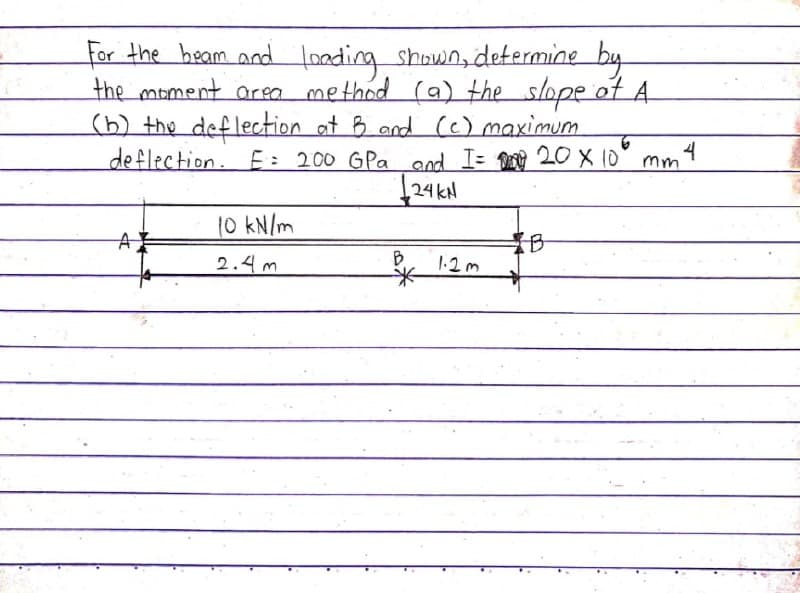 For the beam and loading shown, determine by
the moment area method (a) the slope at A
(b) the deflection at B and (c) maximum
deflection. E = 200 GPa and I = 20 X 10⁶ mm⁴
24 kN
10 kN/m
A B
2.4 m B 1.2 m